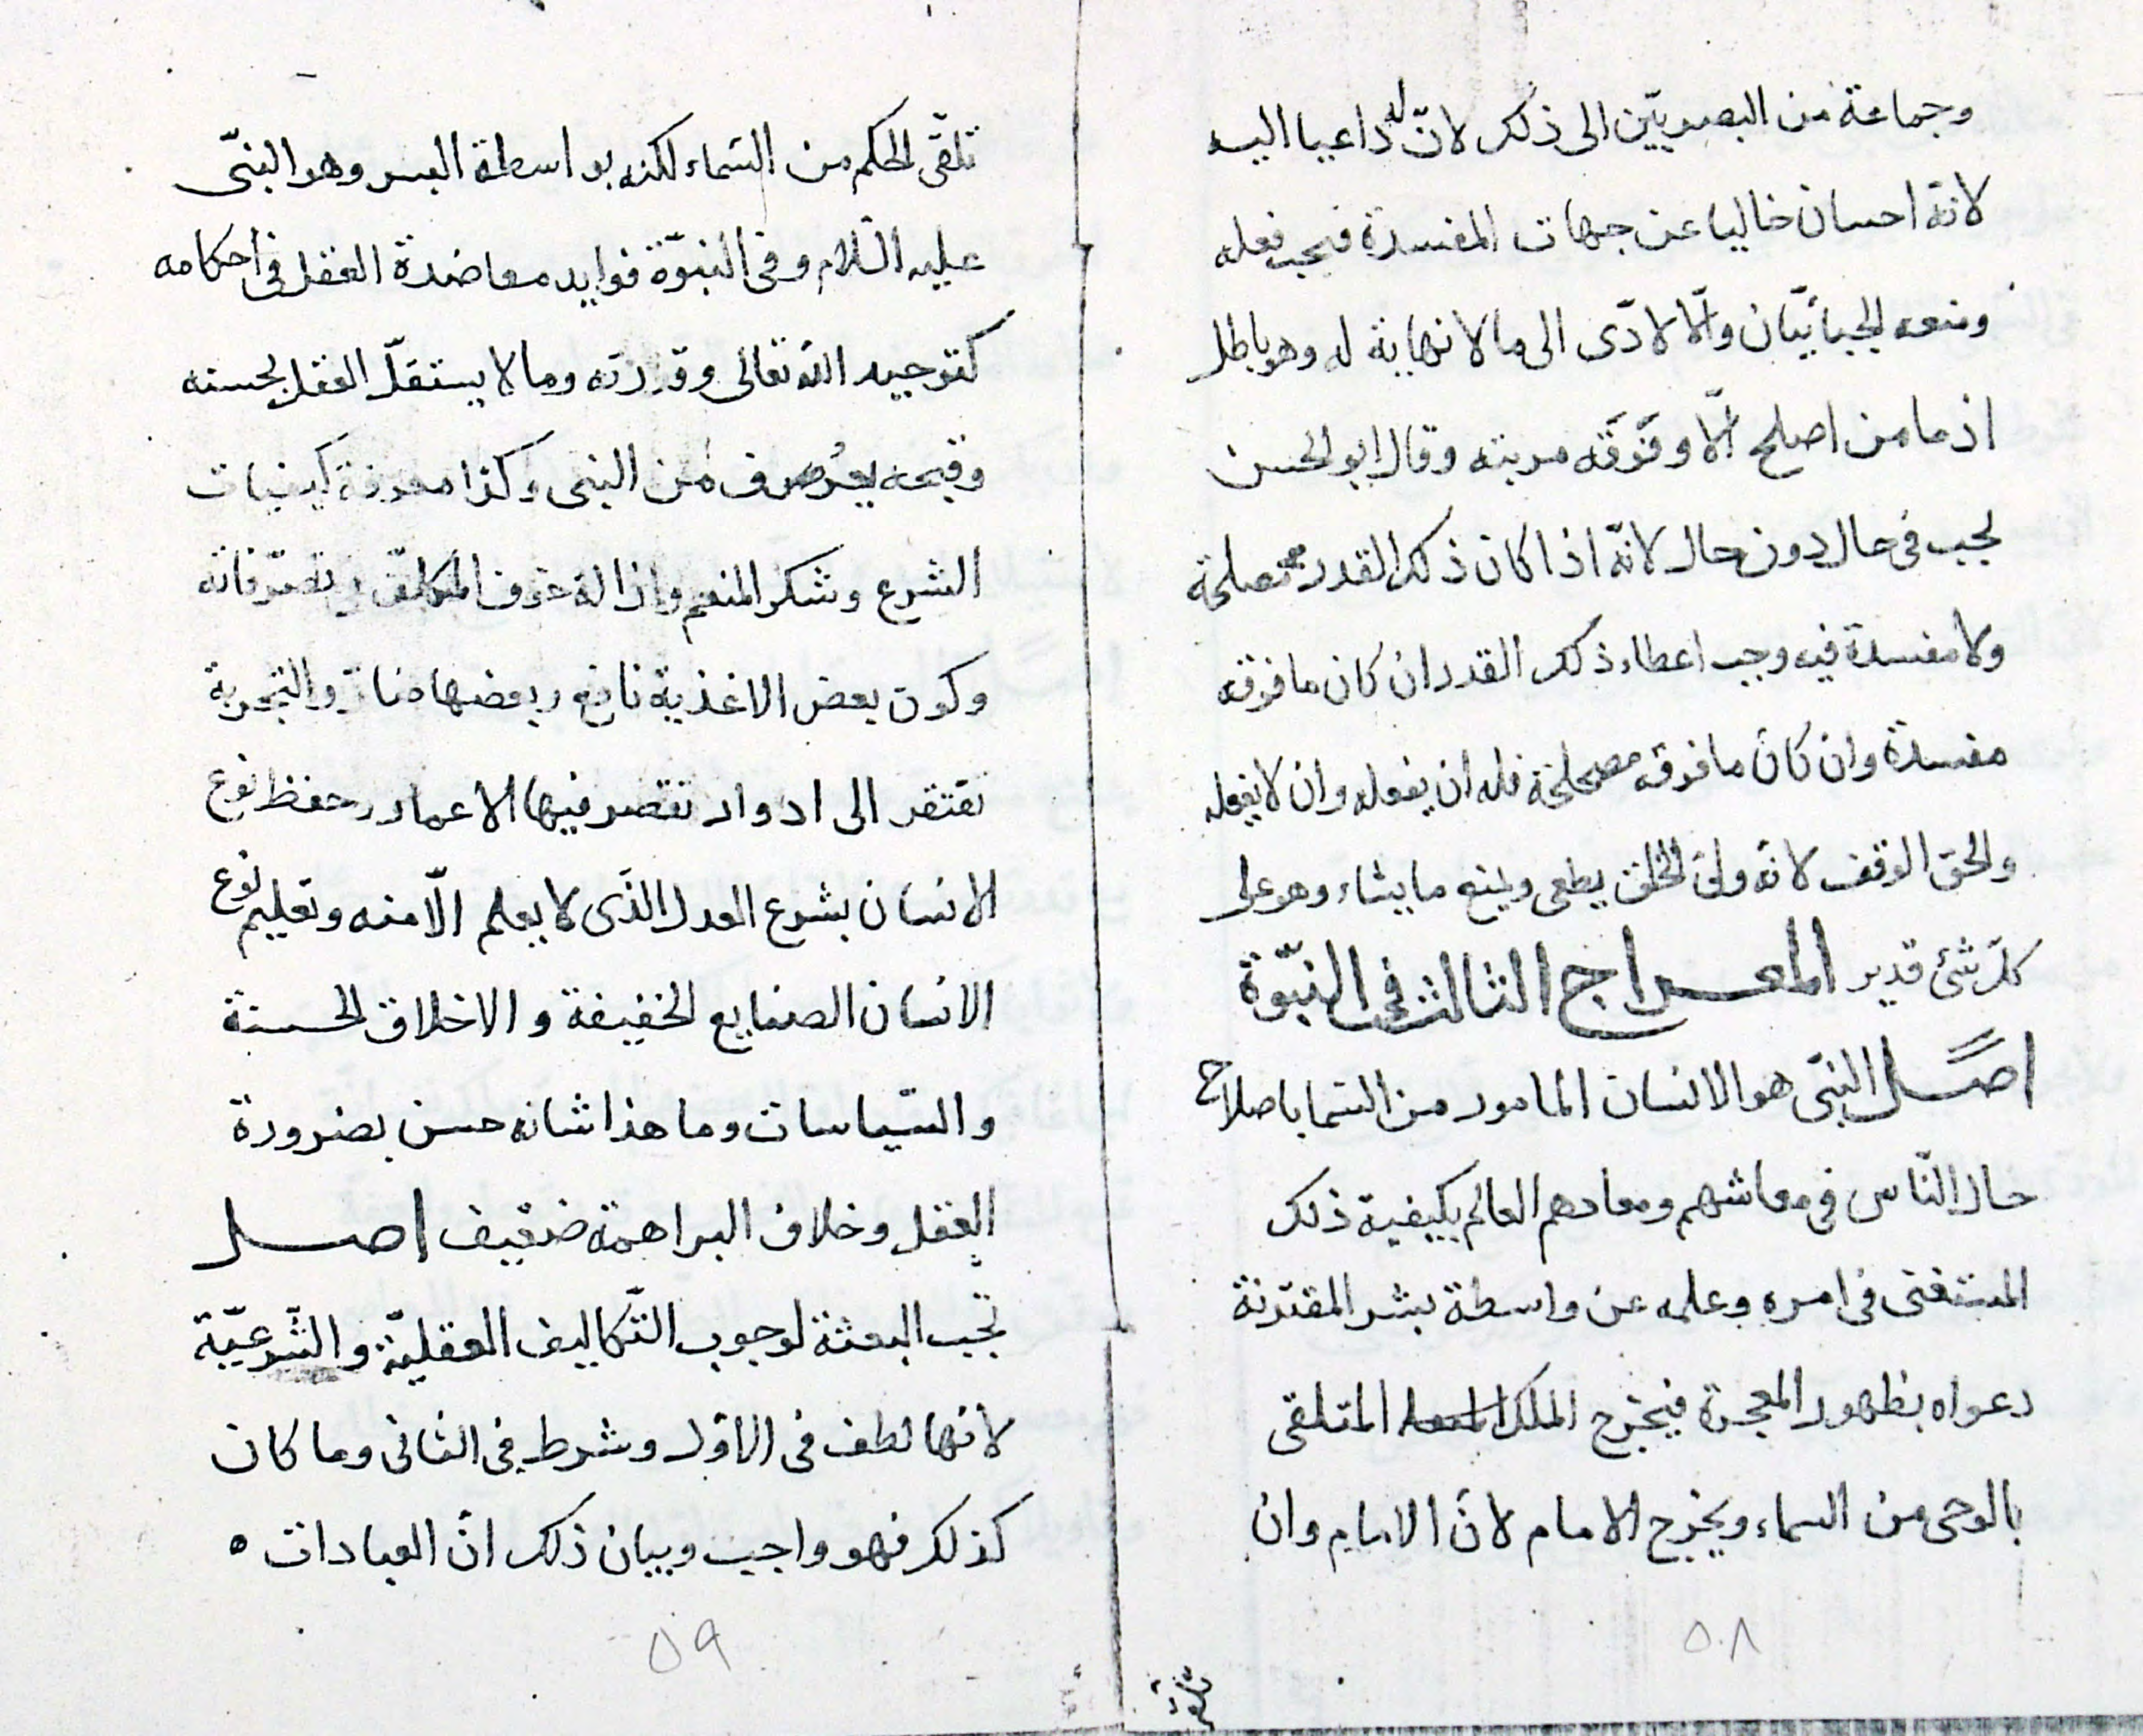 وجماعة من البصريّين الى ذلك لانّ له داعيا اليه
لانه احسان خاليا عن جهات المفسدة فيجب فعله
ومنعه الجبائيّان والّا لادّى الى ما لا نهاية له وهو باطل
اذ ما من اصلح الّا وفوقه مرتبه وقال ابو الحسن
يجب فى حال دون حال لانّه اذا كان ذلك القدر مصلحة
ولا مفسدة فيه وجب اعطاء ذلك القدر ان كان ما فوقه
مفسدة وان كان ما فوقه مصلحة فله ان يفعله وان لا يفعله
والحق الوقف لانه ولى الخلق يطعى ويمنع ما يشاء وهو على
كلّ شئ قدير المعراج الثالث فى النبوّة
اصل النبّى هو الانسان المامور من السّما باصلاح
حال النّاس فى معاشهم ومعادهم العالم بكيفية ذلك
المستغنى فى امره وعلمه عن واسطة بشر المقترنة
دعواه بظهور المعجزة فيخرج الملك المتلقى
بالوحى من السماء ويخرج الامام لانّ الامام وان
تلقّى الحكم من السّماء لكنه بواسطة البسر وهو النبّى
عليه السّلام وفى النبوّة فوايد معاضدة العقل فى احكامه
كتوحيد الله تعالى وقدرته وما لا يستقلّ العقل بحسنه
وقبحه يعرف من النبى وكذا معرفة كيفيات
الشرع وشكر المنعم وازالة خوف المكلّف فى تصرّفاته
وكون بعض الاغذية نافع وبعضها ضارّ والتجربة
تفتقر الى ادوار تقصر فيها الاعمار وحفظ نوع
الانسان بشرع العدل الذّى لا يعلم الّا منه وتعليم نوع
الانسان الصنايع الخفيفة والاخلاق الحسنة
والسّياسات وما هذا شانه حسن بضرورة
العقل وخلاف البراهمة ضعيف اصل
تجب البعثة لوجوب التّكاليف العقليّة والشّرعيّة
لانها لطف فى الاوّل وشرط فى الثانى وما كان
كذلك فهو واجب وبيان ذلك انّ العبادات ٥
٥٨
٥٩